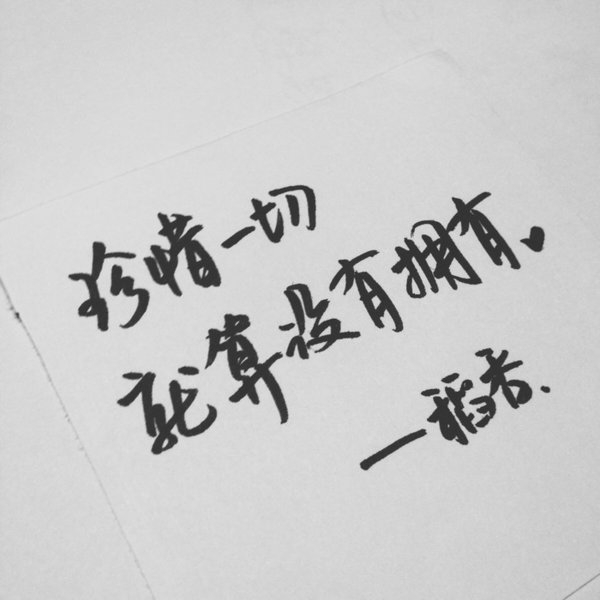 珍惜一切
就算没有拥有.
—稻香.